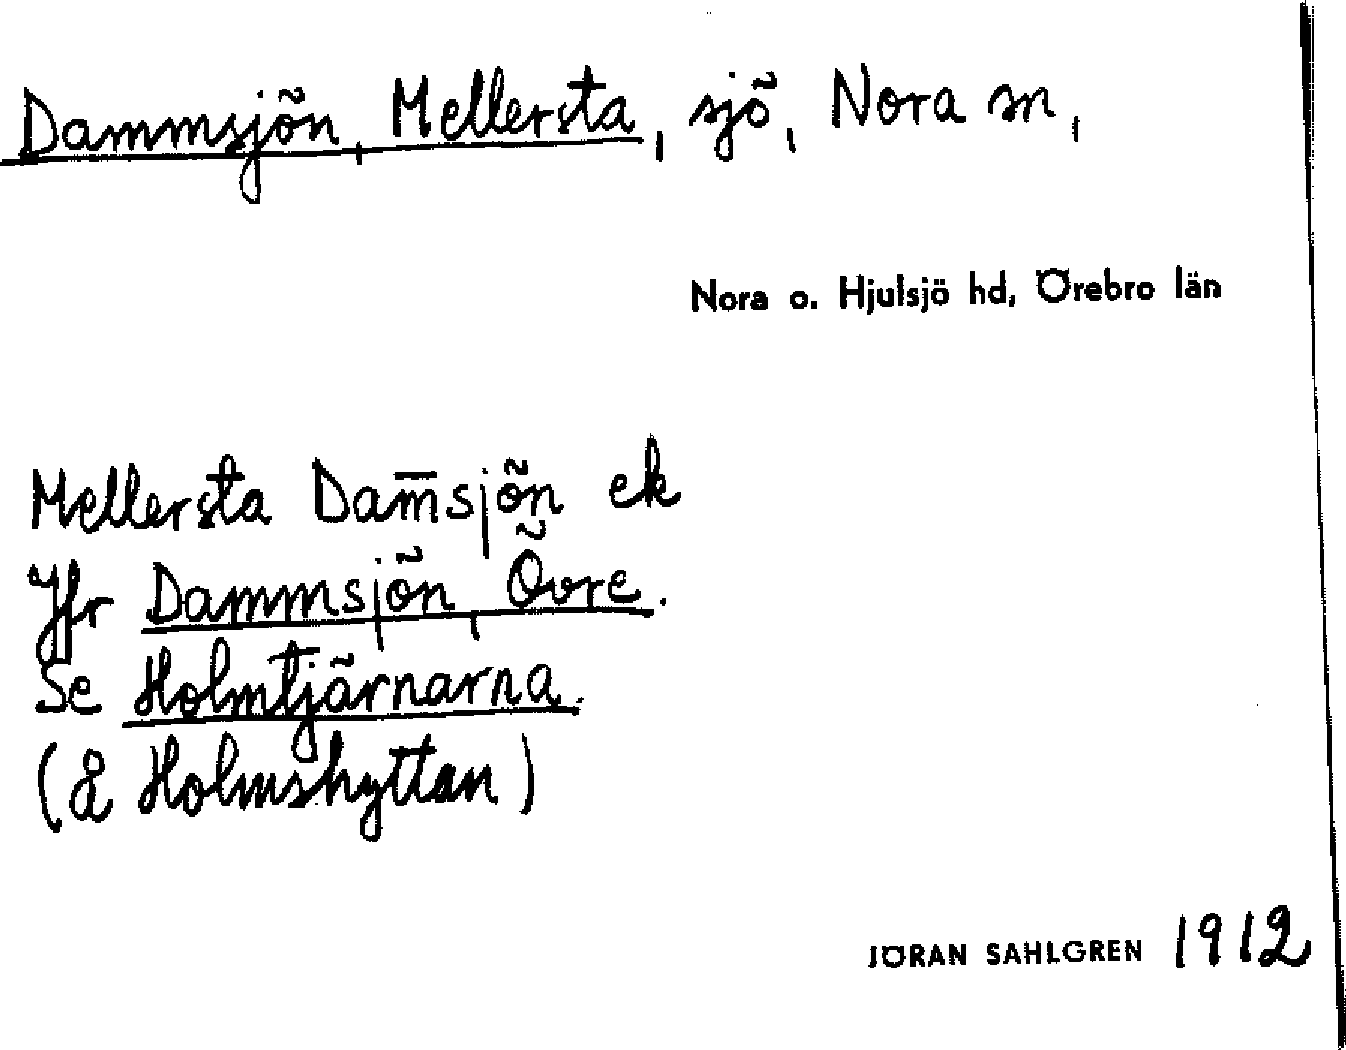 Dammsjön, Mellersta, sjö, Nora sn,
Nora o. Hjulsjö hd, Örebro län
Mellersta Dam̄sjön ek
Jfr Dammsjön, Övre.
Se Holmtjärnarna.
(& Holmshyttan)
JÖRAN SAHLGREN 1912